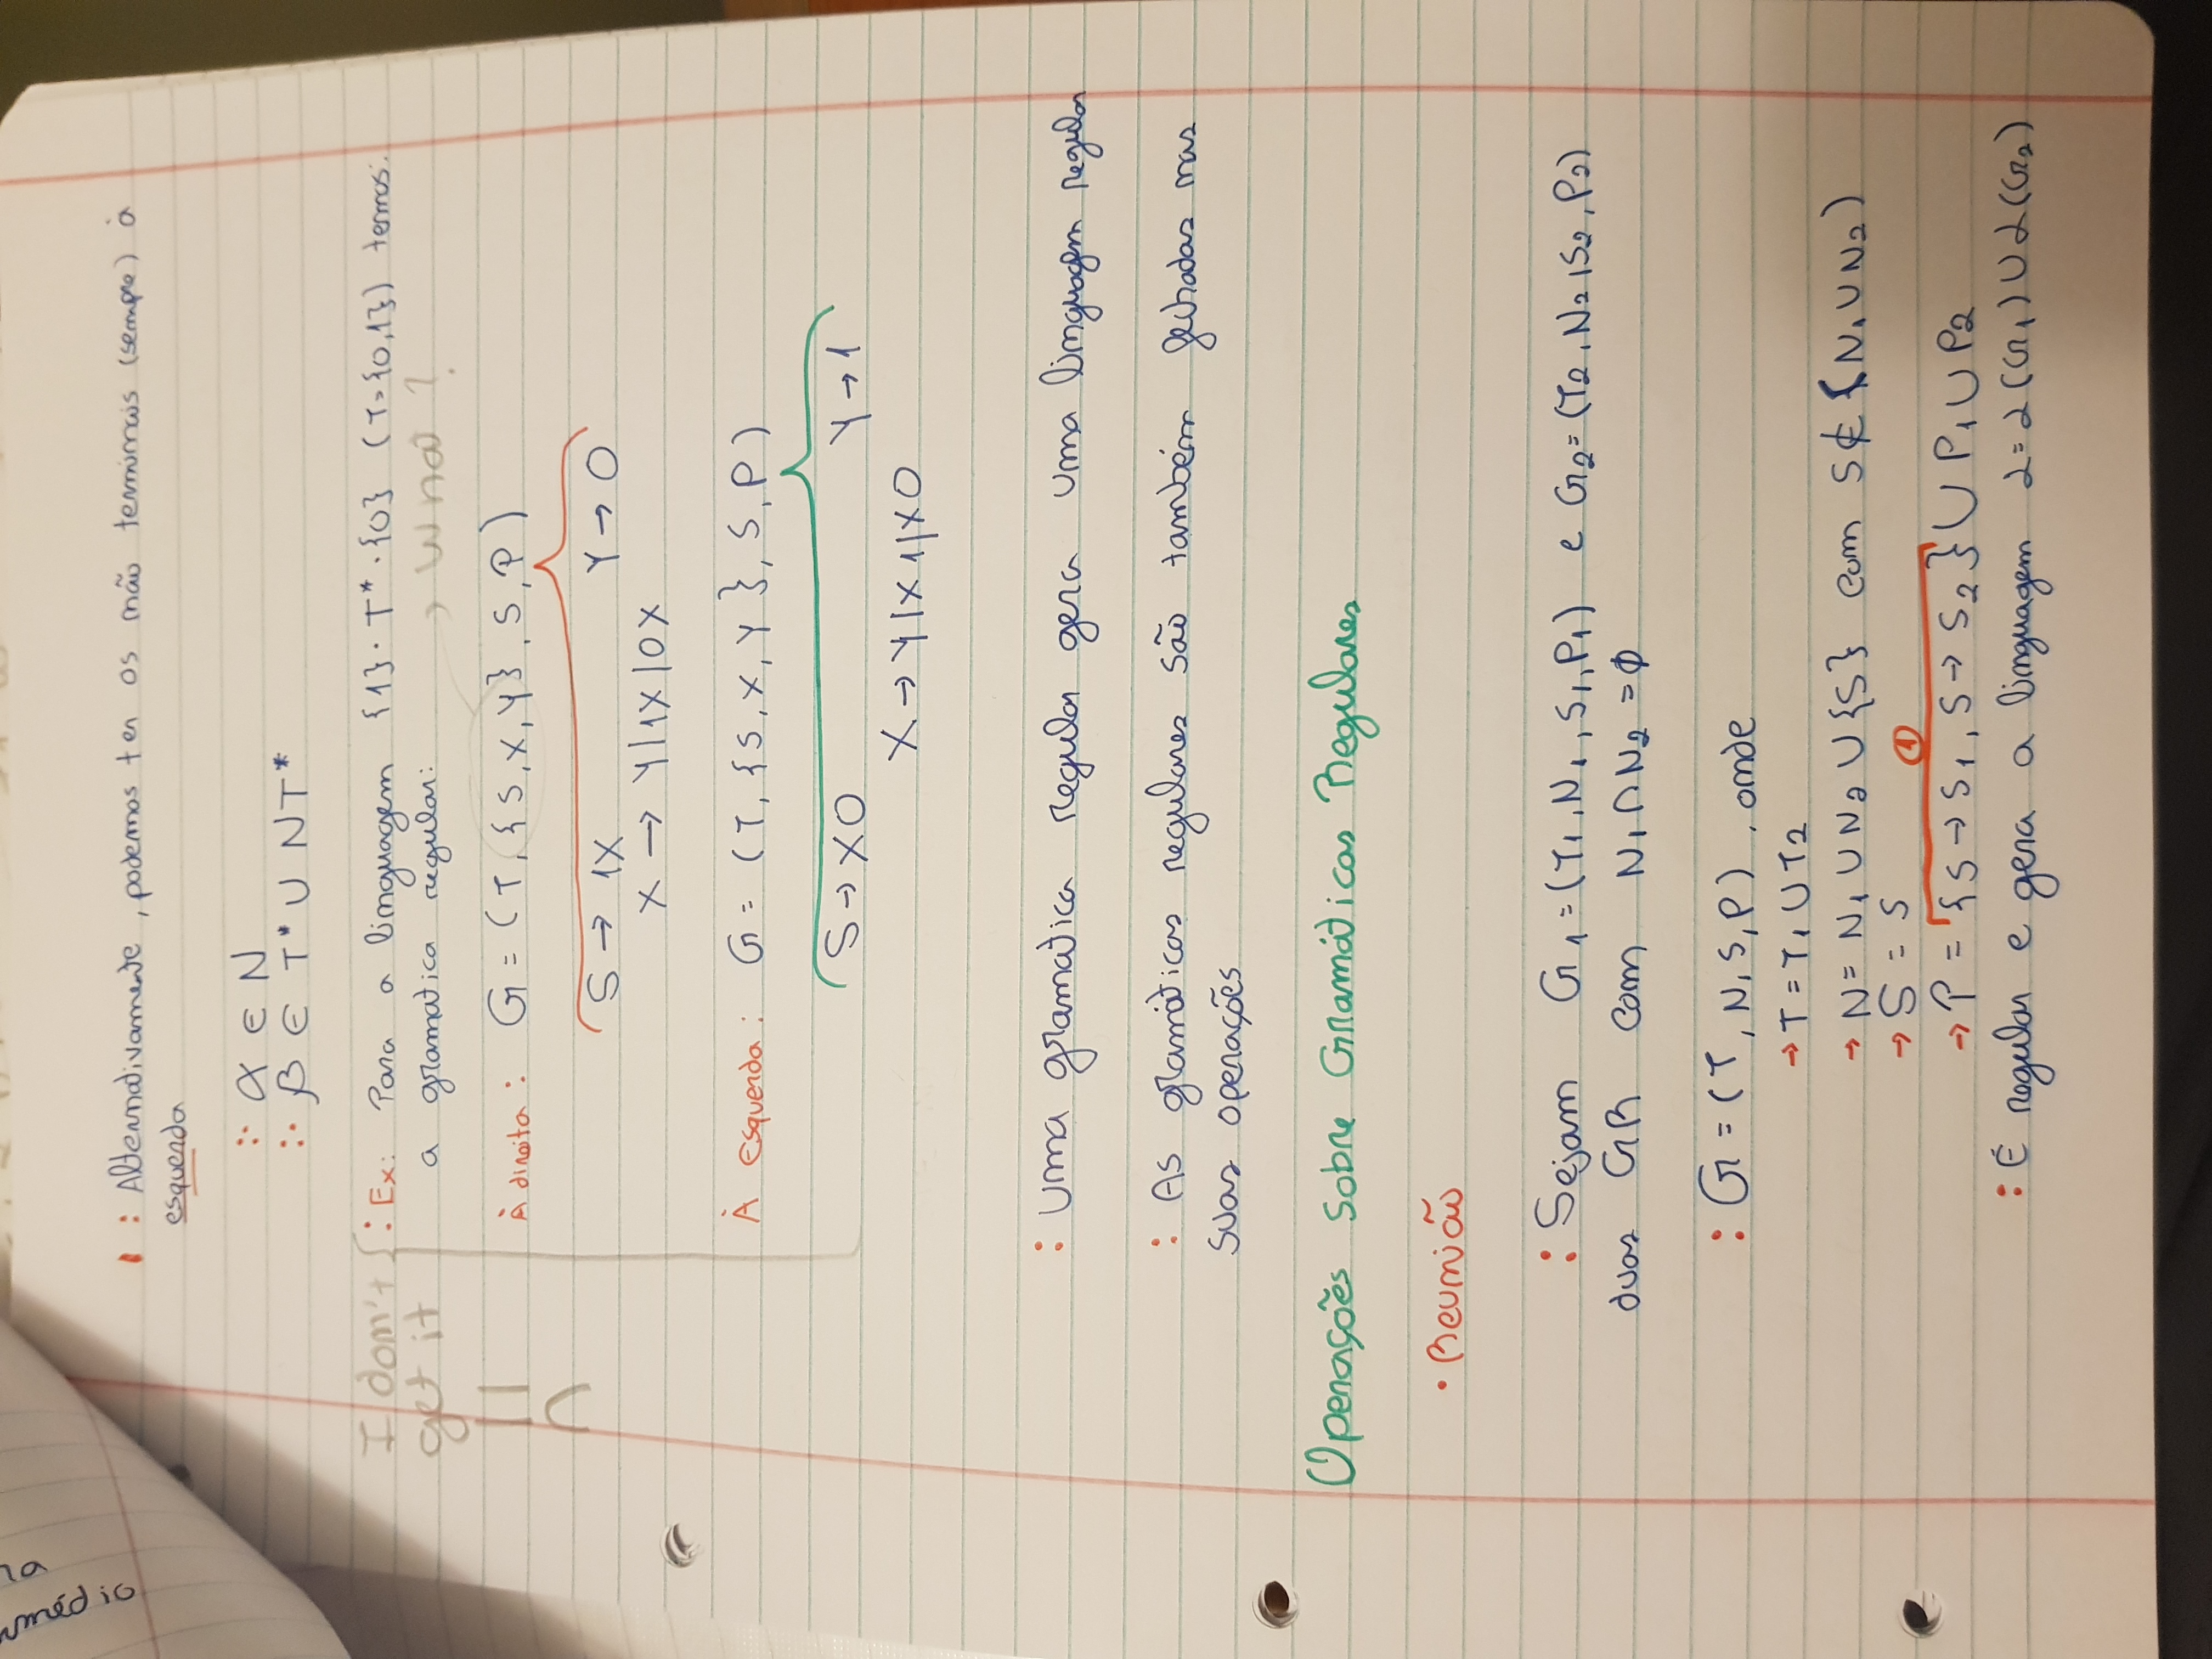 na
médio
: Alternativamente, podemos ter os não terminais (sempre) à
esquerda
:· α ∈ N
:· β ∈ T* ∪ NT*
I don't
get it
: Ex: Para a linguagem {1}·T*·{0} (T={0,1}) temos:
a gramatica regular:
→ What?
À direita: G = (T, {S,X,Y}, S, P)
S → 1X Y → 0
X → Y|1X|0X
À Esquerda: G = (T, {S,X,Y}, S, P)
S → X0 Y → 1
X → Y|X1|X0
: Uma gramatica regular gera uma linguagem regular
: As gramáticas regulares são também fechadas nas
suas operações
Operações Sobre Gramáticas Regulares
• Reunião
: Sejam G1=(T1,N1,S1,P1) e G2=(T2,N2,S2,P2)
duas GR com N1∩N2=∅
: G=(T,N,S,P), onde
→ T=T1∪T2
→ N= N1∪N2∪{S} com S∉(N1∪N2)
→ S = S
①
→ P = {S→S1, S→S2}∪P1∪P2
: É regular e gera a linguagem L=L(G1)∪L(G2)